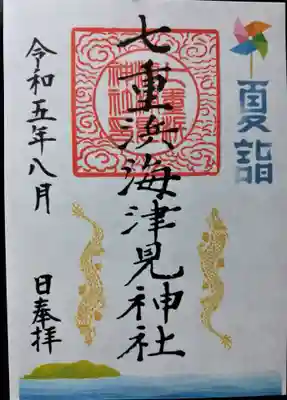 夏詣
七重浜海津見神社
令和五年八月
日奉拝